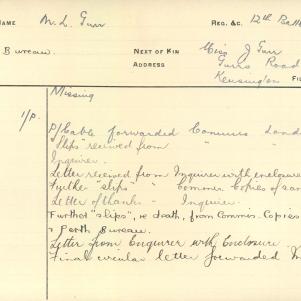 NAME M. L. Gurr REG. &C. 12th Batt
Bureau. NEXT OF KIN Miss J Gurr
ADDRESS Gurrs Road
Kensington
Missing
P/Cable forwarded Commrs Lond
"Slips" received from " "
Inquirer.
Letter received from Inquirer with enclosure
Further "slips" " Commrs. Copies of sam
Letter of thanks " Inquirer.
Further "slips", re death, from Commrs. Copies
& Perth Bureau.
Letter from Enquirer with Enclosure
Final circular letter forwarded